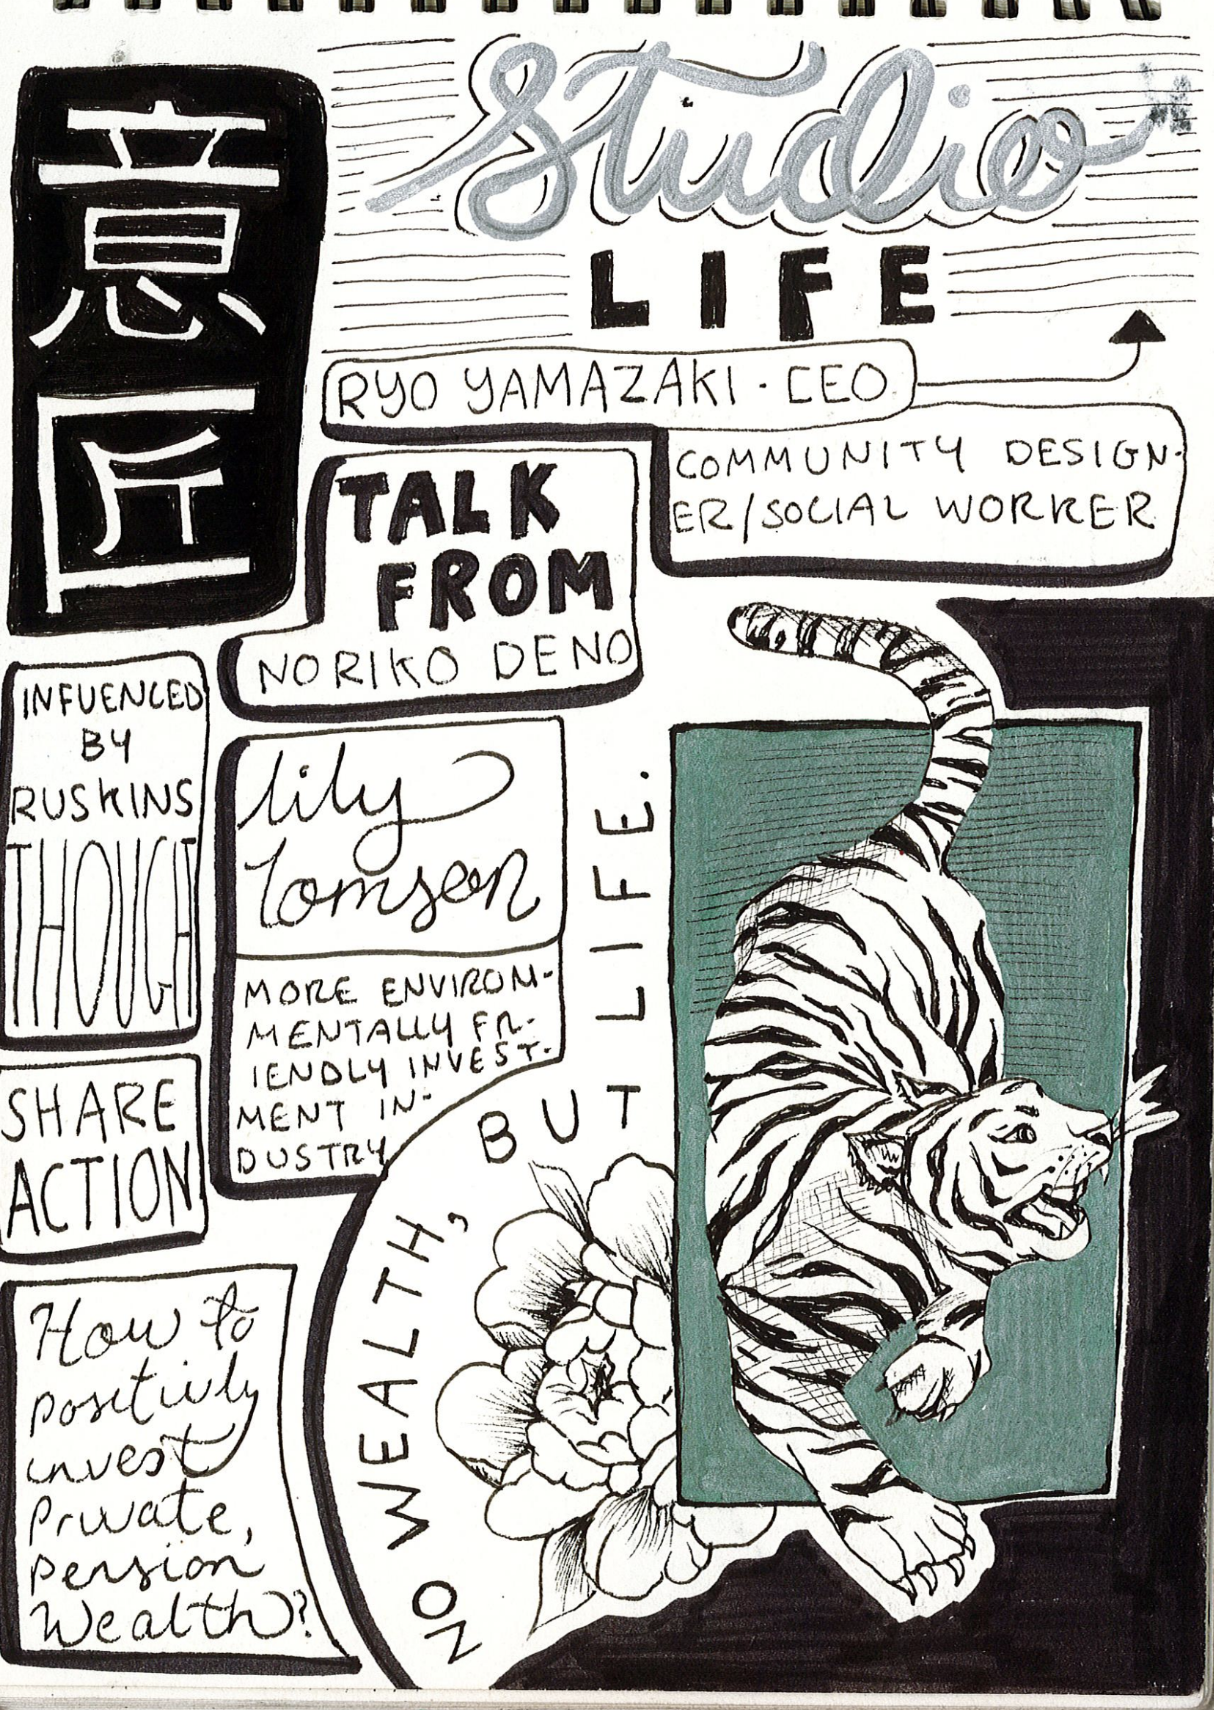 意
匠
Studio
LIFE
RYO YAMAZAKI · CEO
COMMUNITY DESIGN-
ER/SOCIAL WORKER
TALK
FROM
NORIKO DENO
INFUENCED
BY
RUSKINS
THOUGHT
lily
tomson
MORE ENVIRON-
MENTALLY FR-
IENDLY INVEST-
MENT IN-
DUSTRY
SHARE
ACTION
How to
positivly
invest
Private,
pension
Wealth?
NO WEALTH, BUT LIFE.